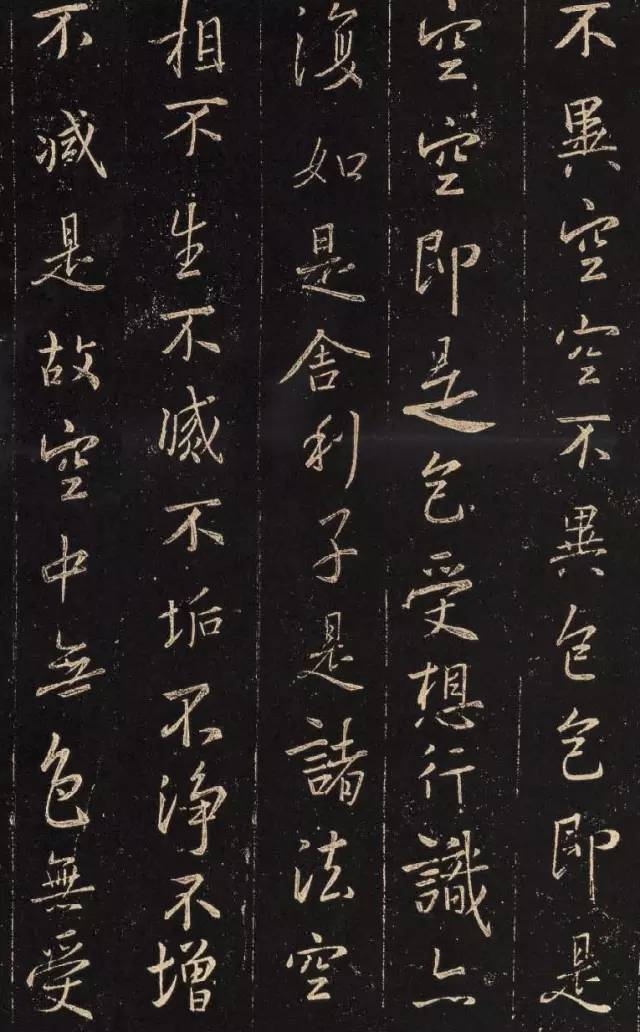 不異空空不異色色即是
空空即是色受想行識亦
復如是舍利子是諸法空
相不生不滅不垢不淨不增
不減是故空中無色無受